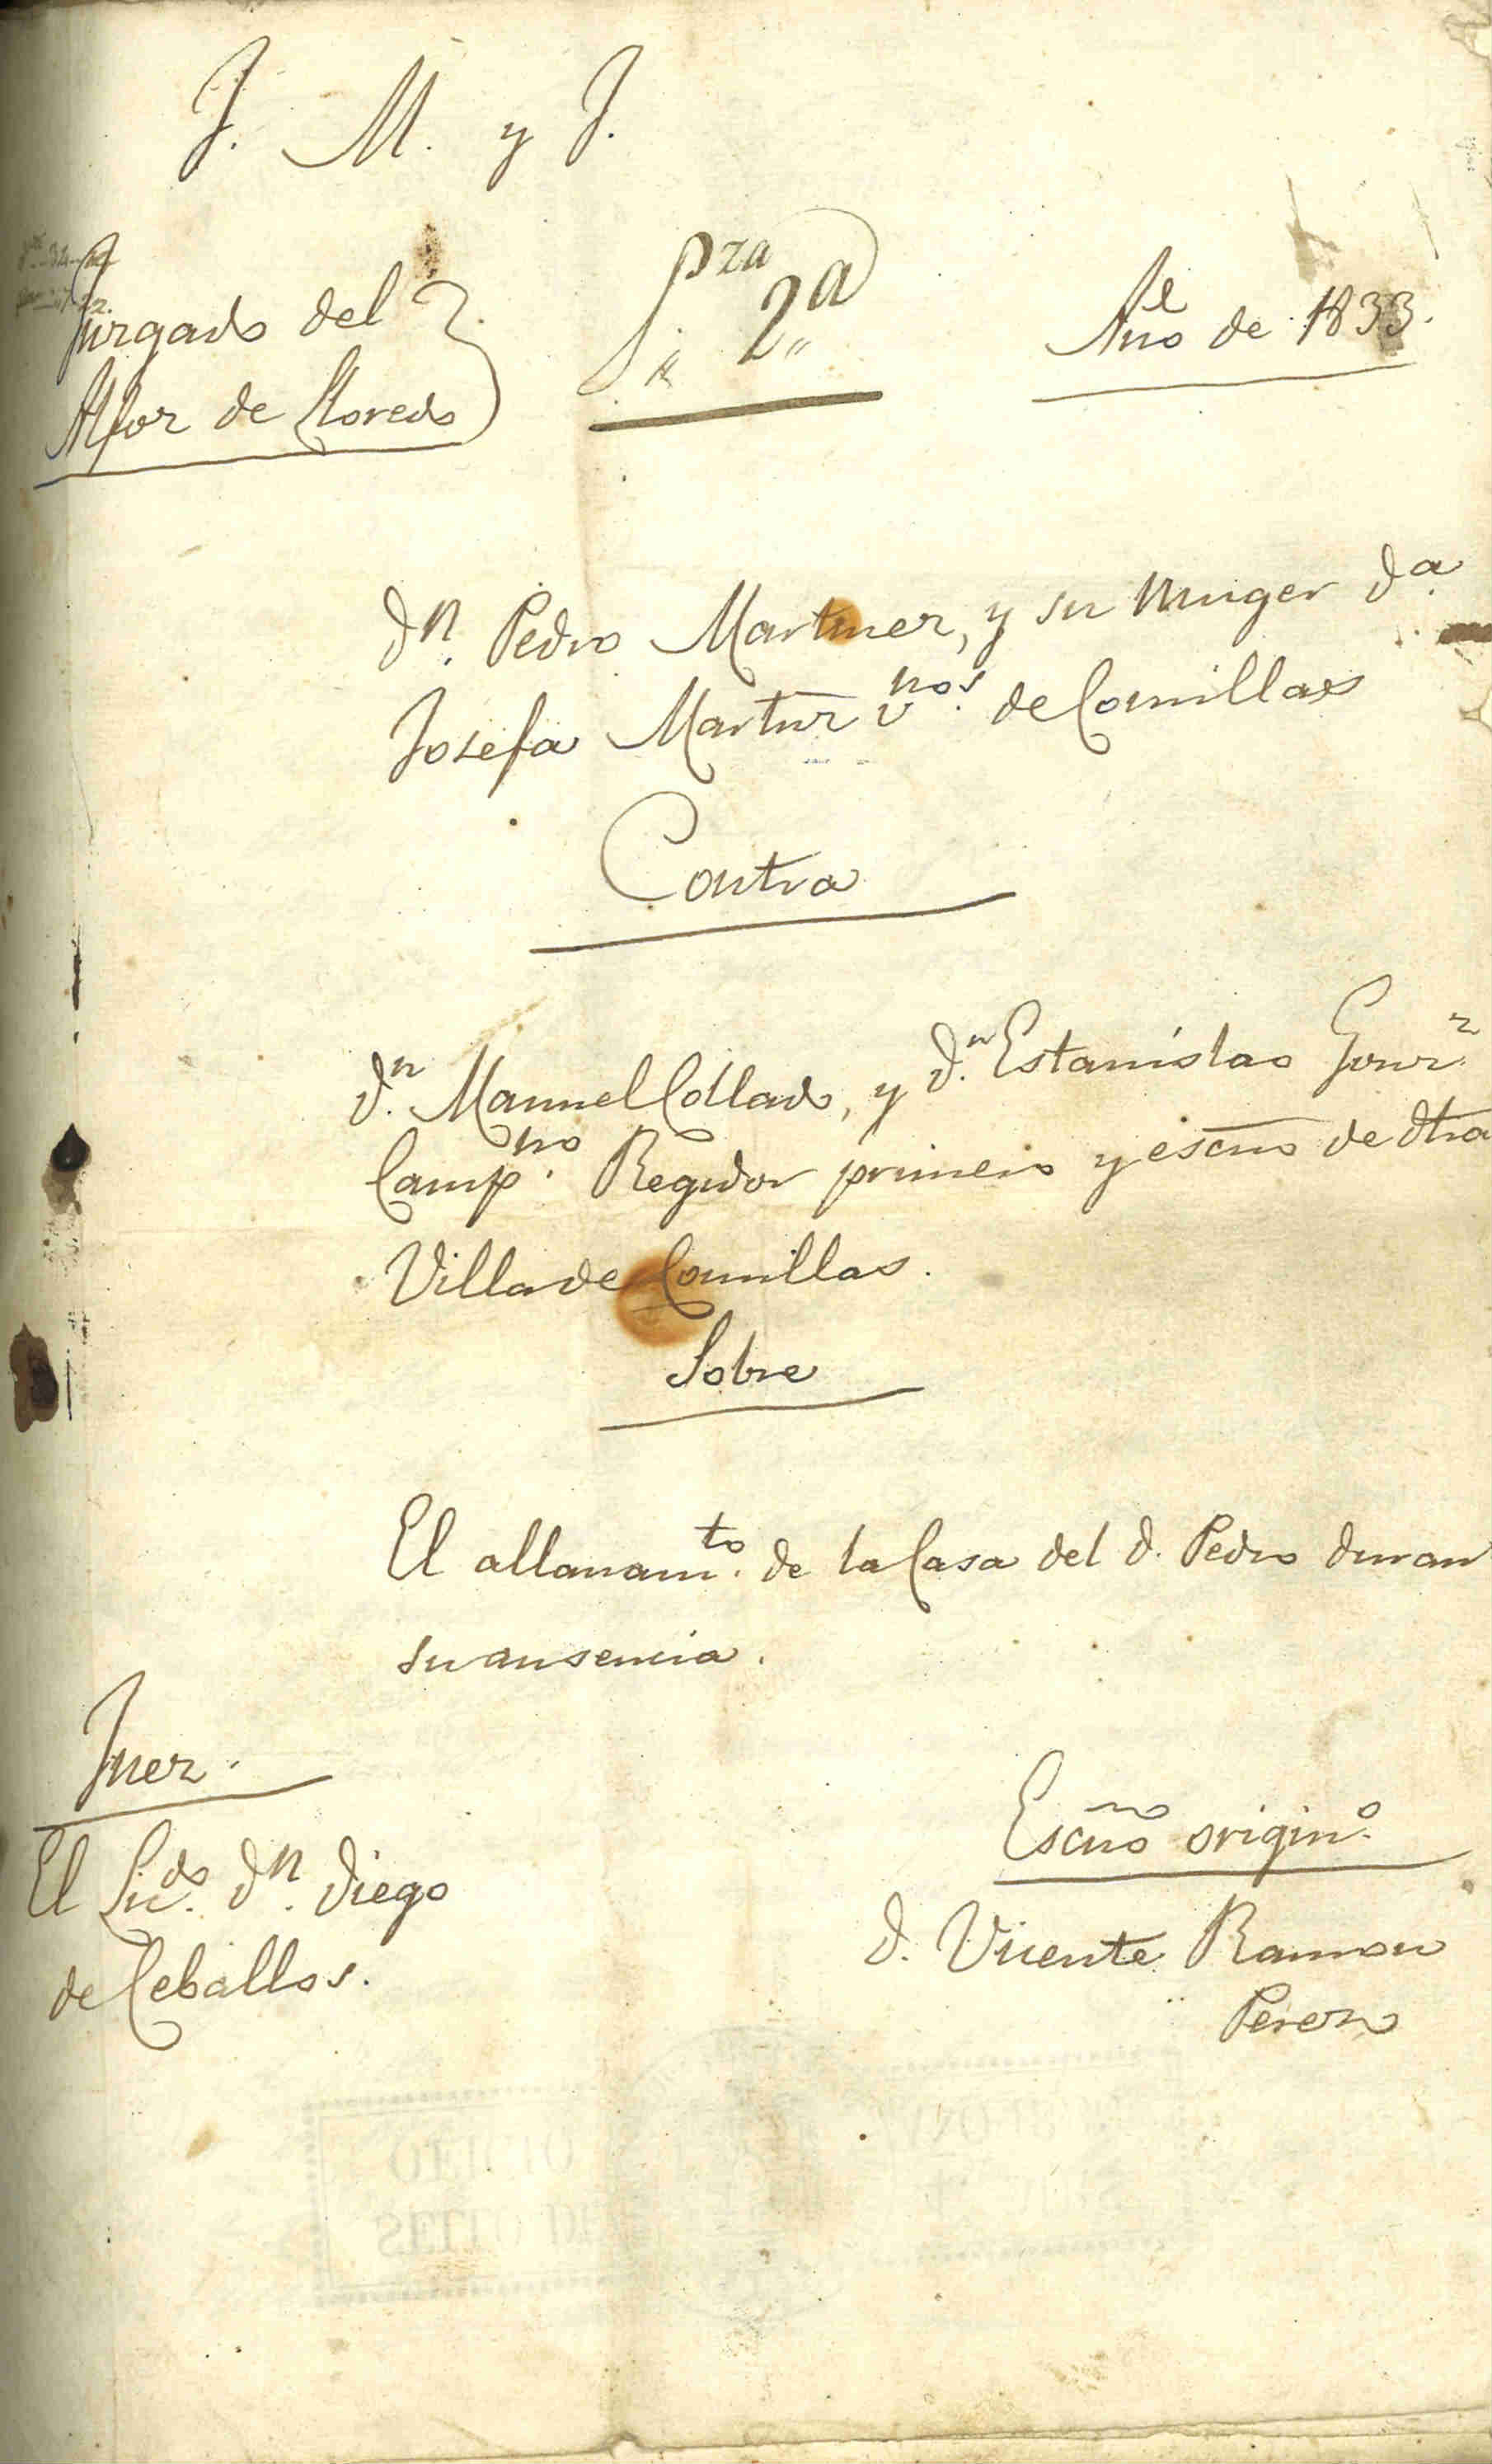 J. M. y J.
Juzgado del
Alfoz de Lloredo
Pza 2ª
Año de 1833.
Dn. Pedro Martinez, y su muger Da.
Josefa Martinz vnos. de Comillas
Contra
Dn. Manuel Collado, y Dn. Estanislao Gonz.
Campno. Regidor primero y escno de dha
Villa de Comillas.
Sobre
El allanamto. de la Casa del D. Pedro duran
su ausencia.
Juez.
El Licdo. Dn. Diego
de Ceballos.
Escno origino.
D. Vicente Ramon
Perez